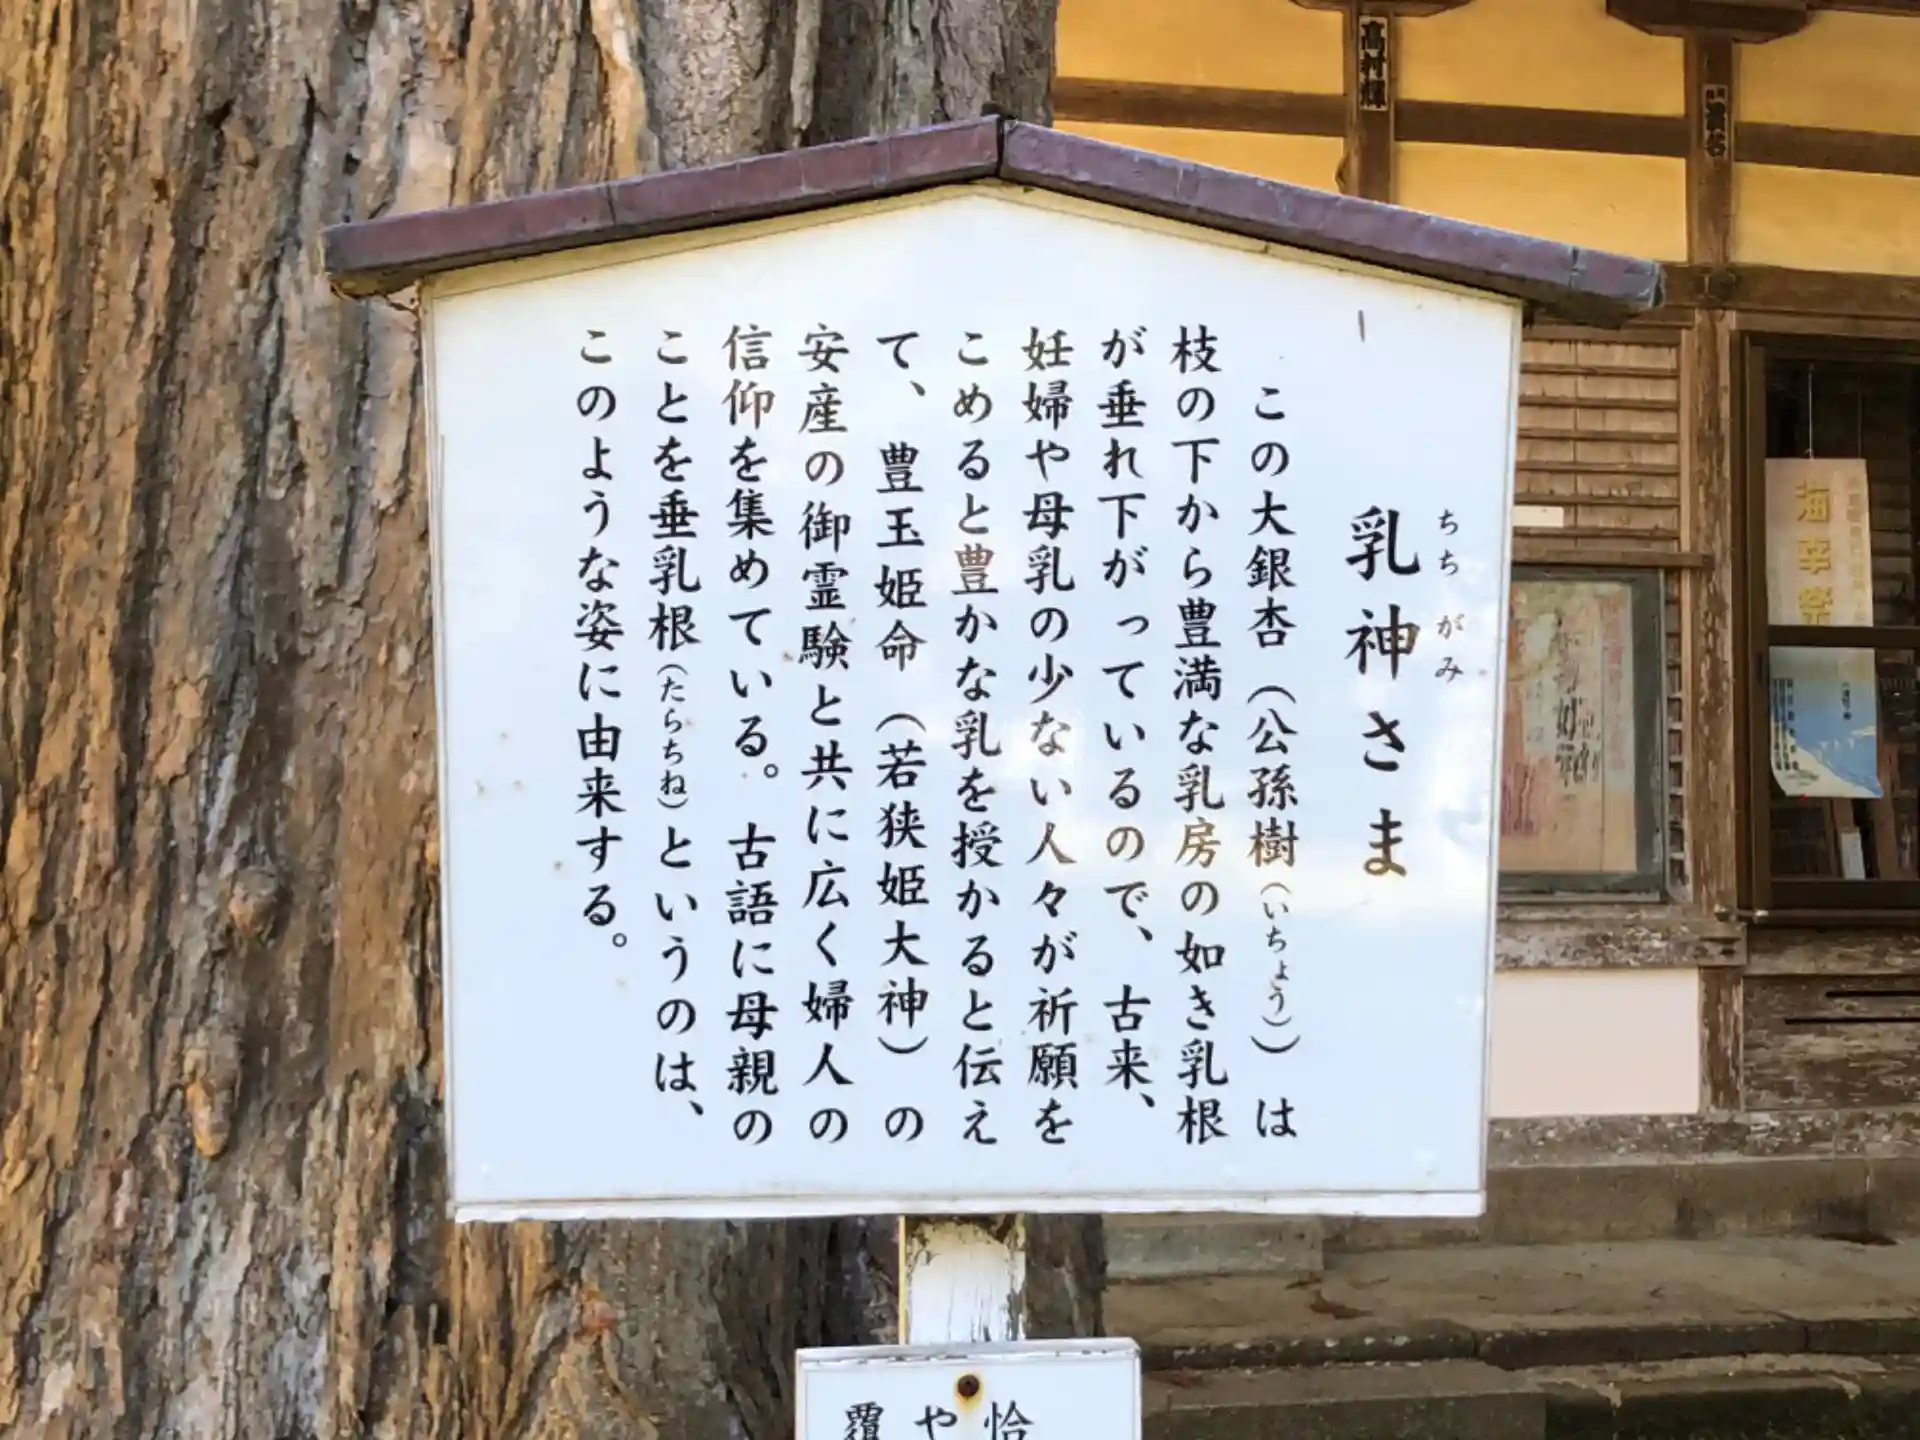 乳神さま
ちちがみ
この大銀杏（公孫樹（いちょう））は
枝の下から豊満な乳房の如き乳根
が垂れ下がっているので、古来、
妊婦や母乳の少ない人々が祈願を
こめると豊かな乳を授かると伝え
て、豊玉姫命（若狭姫大神）の
安産の御霊験と共に広く婦人の
信仰を集めている。古語に母親の
ことを垂乳根（たらちね）というのは、
このような姿に由来する。
恰
や
覆
高村輝
海幸祭